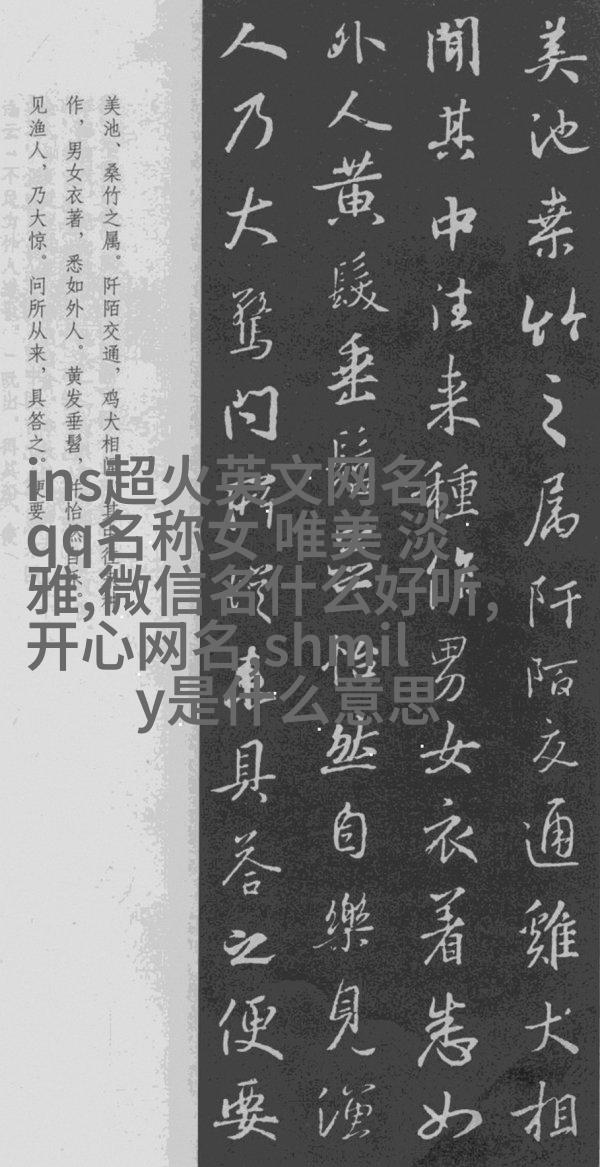 美池桒竹之属阡陌交通雞犬相
聞其中往来種作男女衣着悉如
外人黄髮垂髫並怡然自樂見漁
人乃大驚問所從来具答之便要
美池、桑竹之属。阡陌交通，鸡犬相闻。其中往来种
作，男女衣著，悉如外人。黄发垂髫，并怡然自乐。
见渔人，乃大惊。问所从来，具答之。便要
ins超火英文网名,
qq名称女 唯美 淡
雅,微信名什么好听,
开心网名,shmil
y是什么意思